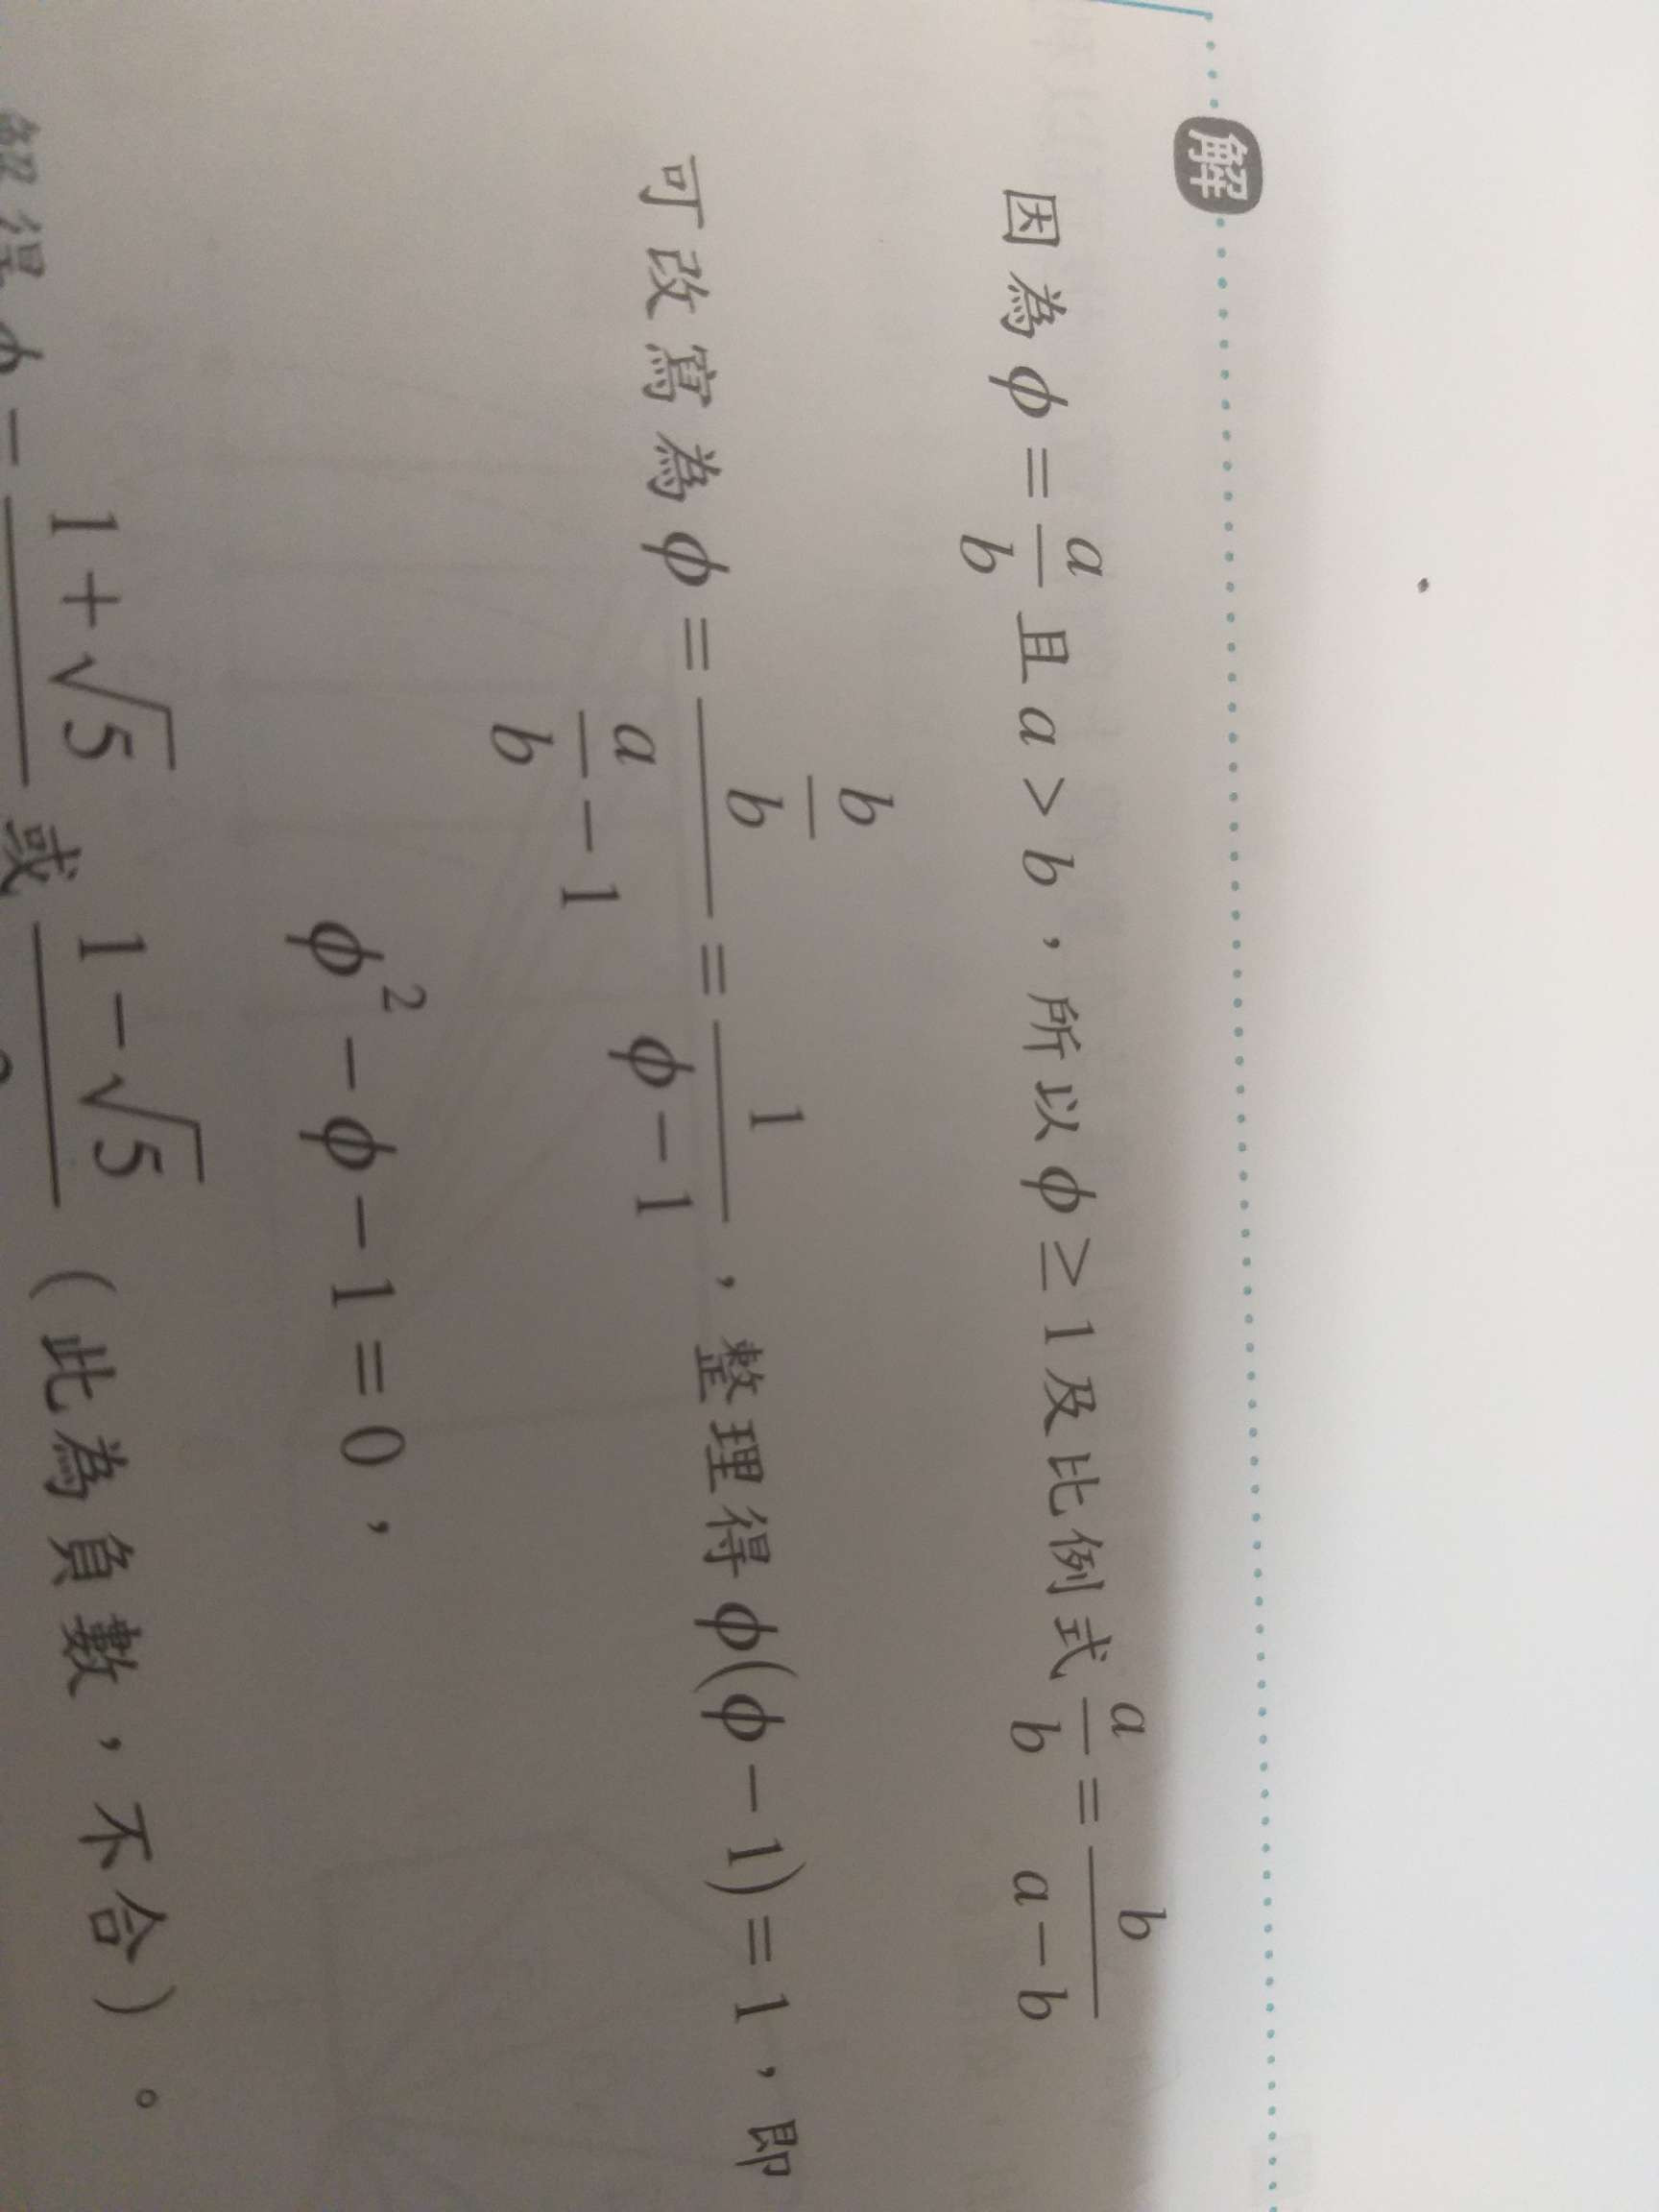 解
因為 ϕ = a/b 且 a > b，所以 ϕ ≥ 1 及比例式 a/b = b/(a − b)
可改寫為 ϕ = (b/b)/(a/b − 1) = 1/(ϕ − 1)，整理得 ϕ(ϕ − 1) = 1，即
ϕ² − ϕ − 1 = 0，
解得 ϕ = 1 + √5 或 1 − √5（此為負數，不合）。